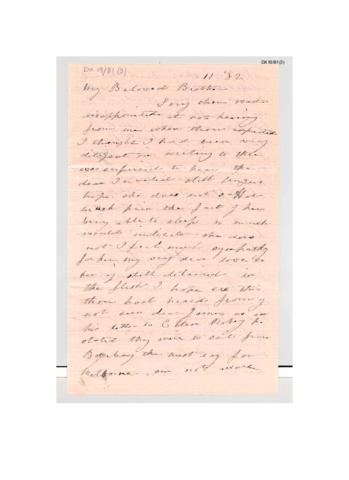 DX 19/81(3)
DX 19/81(3)
11 '82
My Beloved Brother
I was
disappointed at not hearing
from me when thou expected
I thought I had been very
diligent in writing to thee
was surprised to hear the
dear Invalid still lingers
hope she does not suffer
much pain the fact of her
being able to sleep so much
would indicate she does
not I feel much sympathy
for him my very dear love to
her if still detained in
the flesh I hope ere this
thou hast heard from
not seen dear James as in
his letter to Ellen he
stated they were to sail from
Bombay the next day for
Melbourne am not